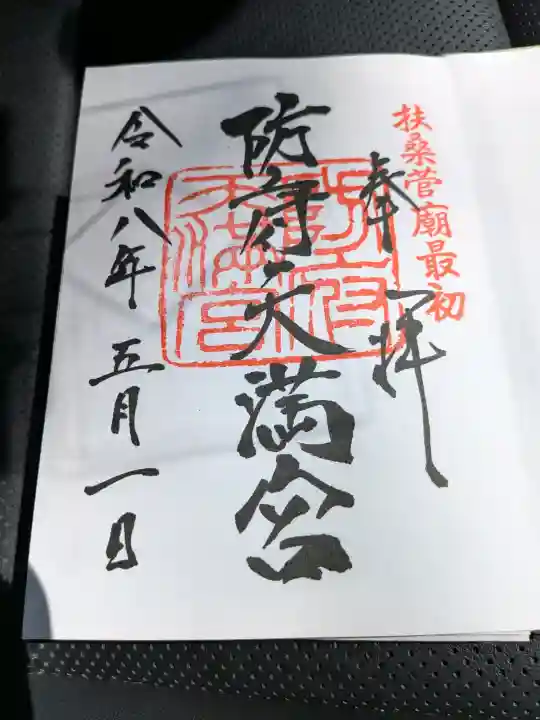 扶桑菅廟最初
奉拝
防府天満宮
令和八年五月一日